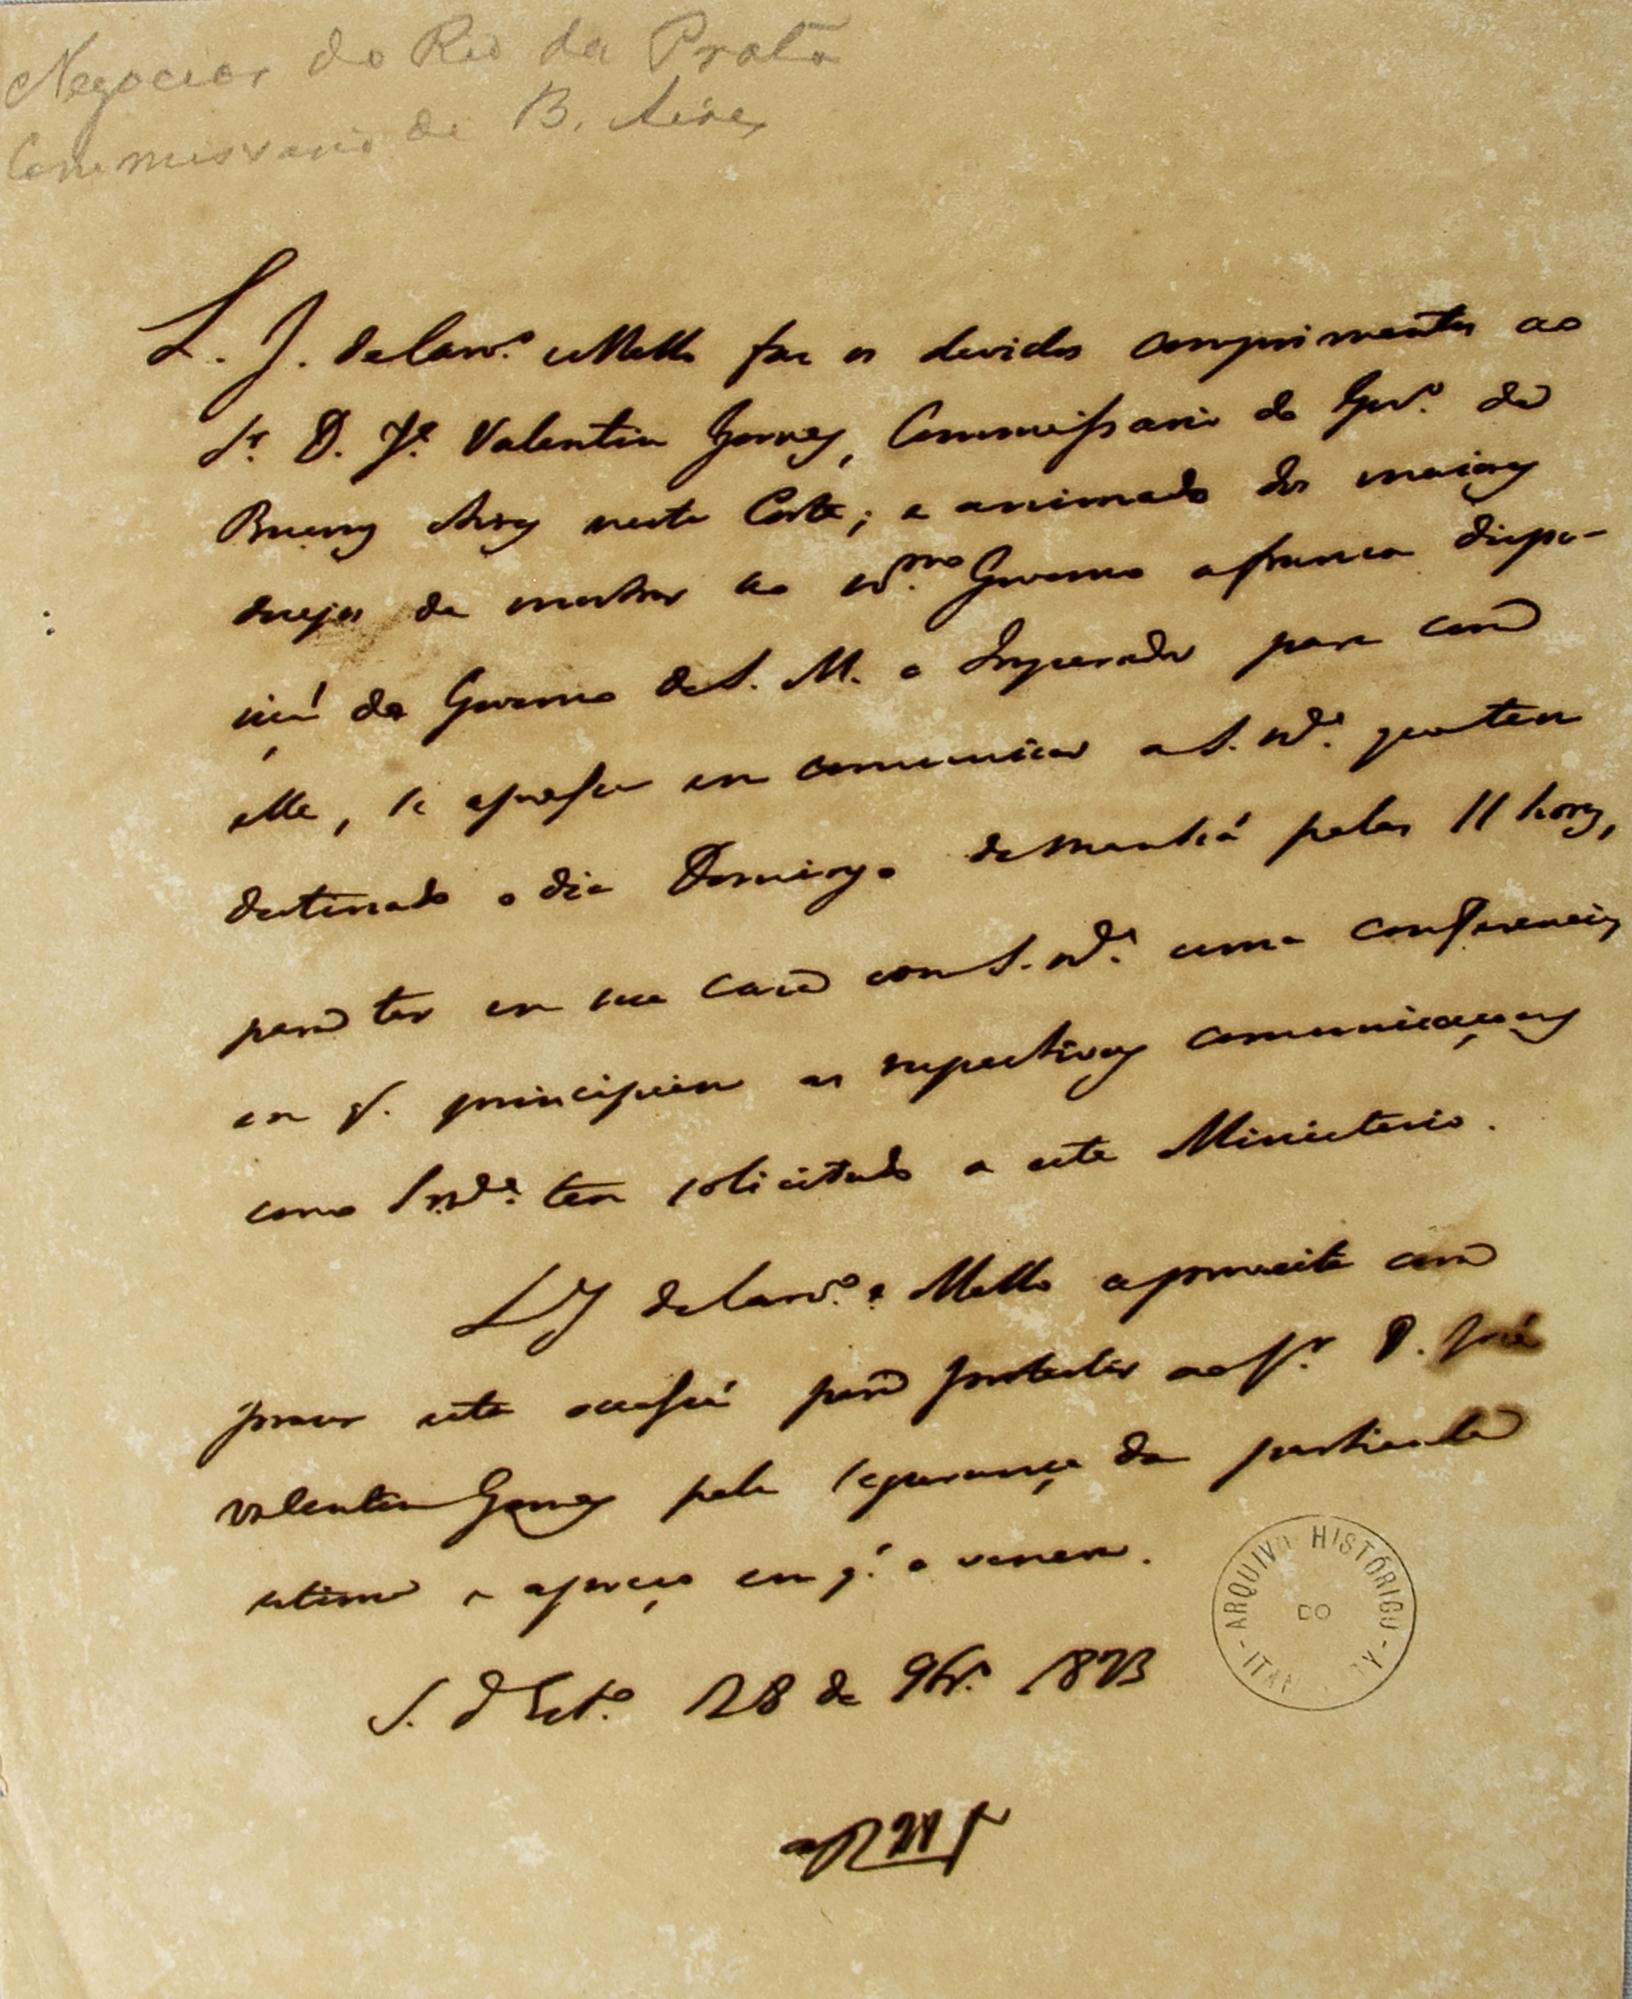 Negocios do Rio da Prata
Commissario de B. Aires
L. J. de Carv.º e Mello faz os devidos comprimentos ao
Sr. D. Jé. Valentin Gomes, Commissario do Gov.º de
Buenos Aires nesta Corte; e animado dos maiores
dezejos de mostrar ao m.mo Governo a franca dispo-
içaõ do Governo de S. M. o Imperador para com
elle, se apressa em comunicar a S. M.ce que tem
destinado o dia Domingo de manhã pelas 11 horas,
para ter em sua casa com S. M.ce uma conferencia,
em q. principiem as respectivas comunicaçoens
como S. M.ce tem solicitado a este Ministerio.
L J de Carv.º e Mello aproveita com
prazer esta occasiaõ para protestar ao Sr. D. José
Valentin Gomes pela segurança da particular
estima e apreço em q. o venera.
S. d' Est.º 28 de 9br.º 1823
ARQUIVO HISTÓRICO
DO
ITAMARATY